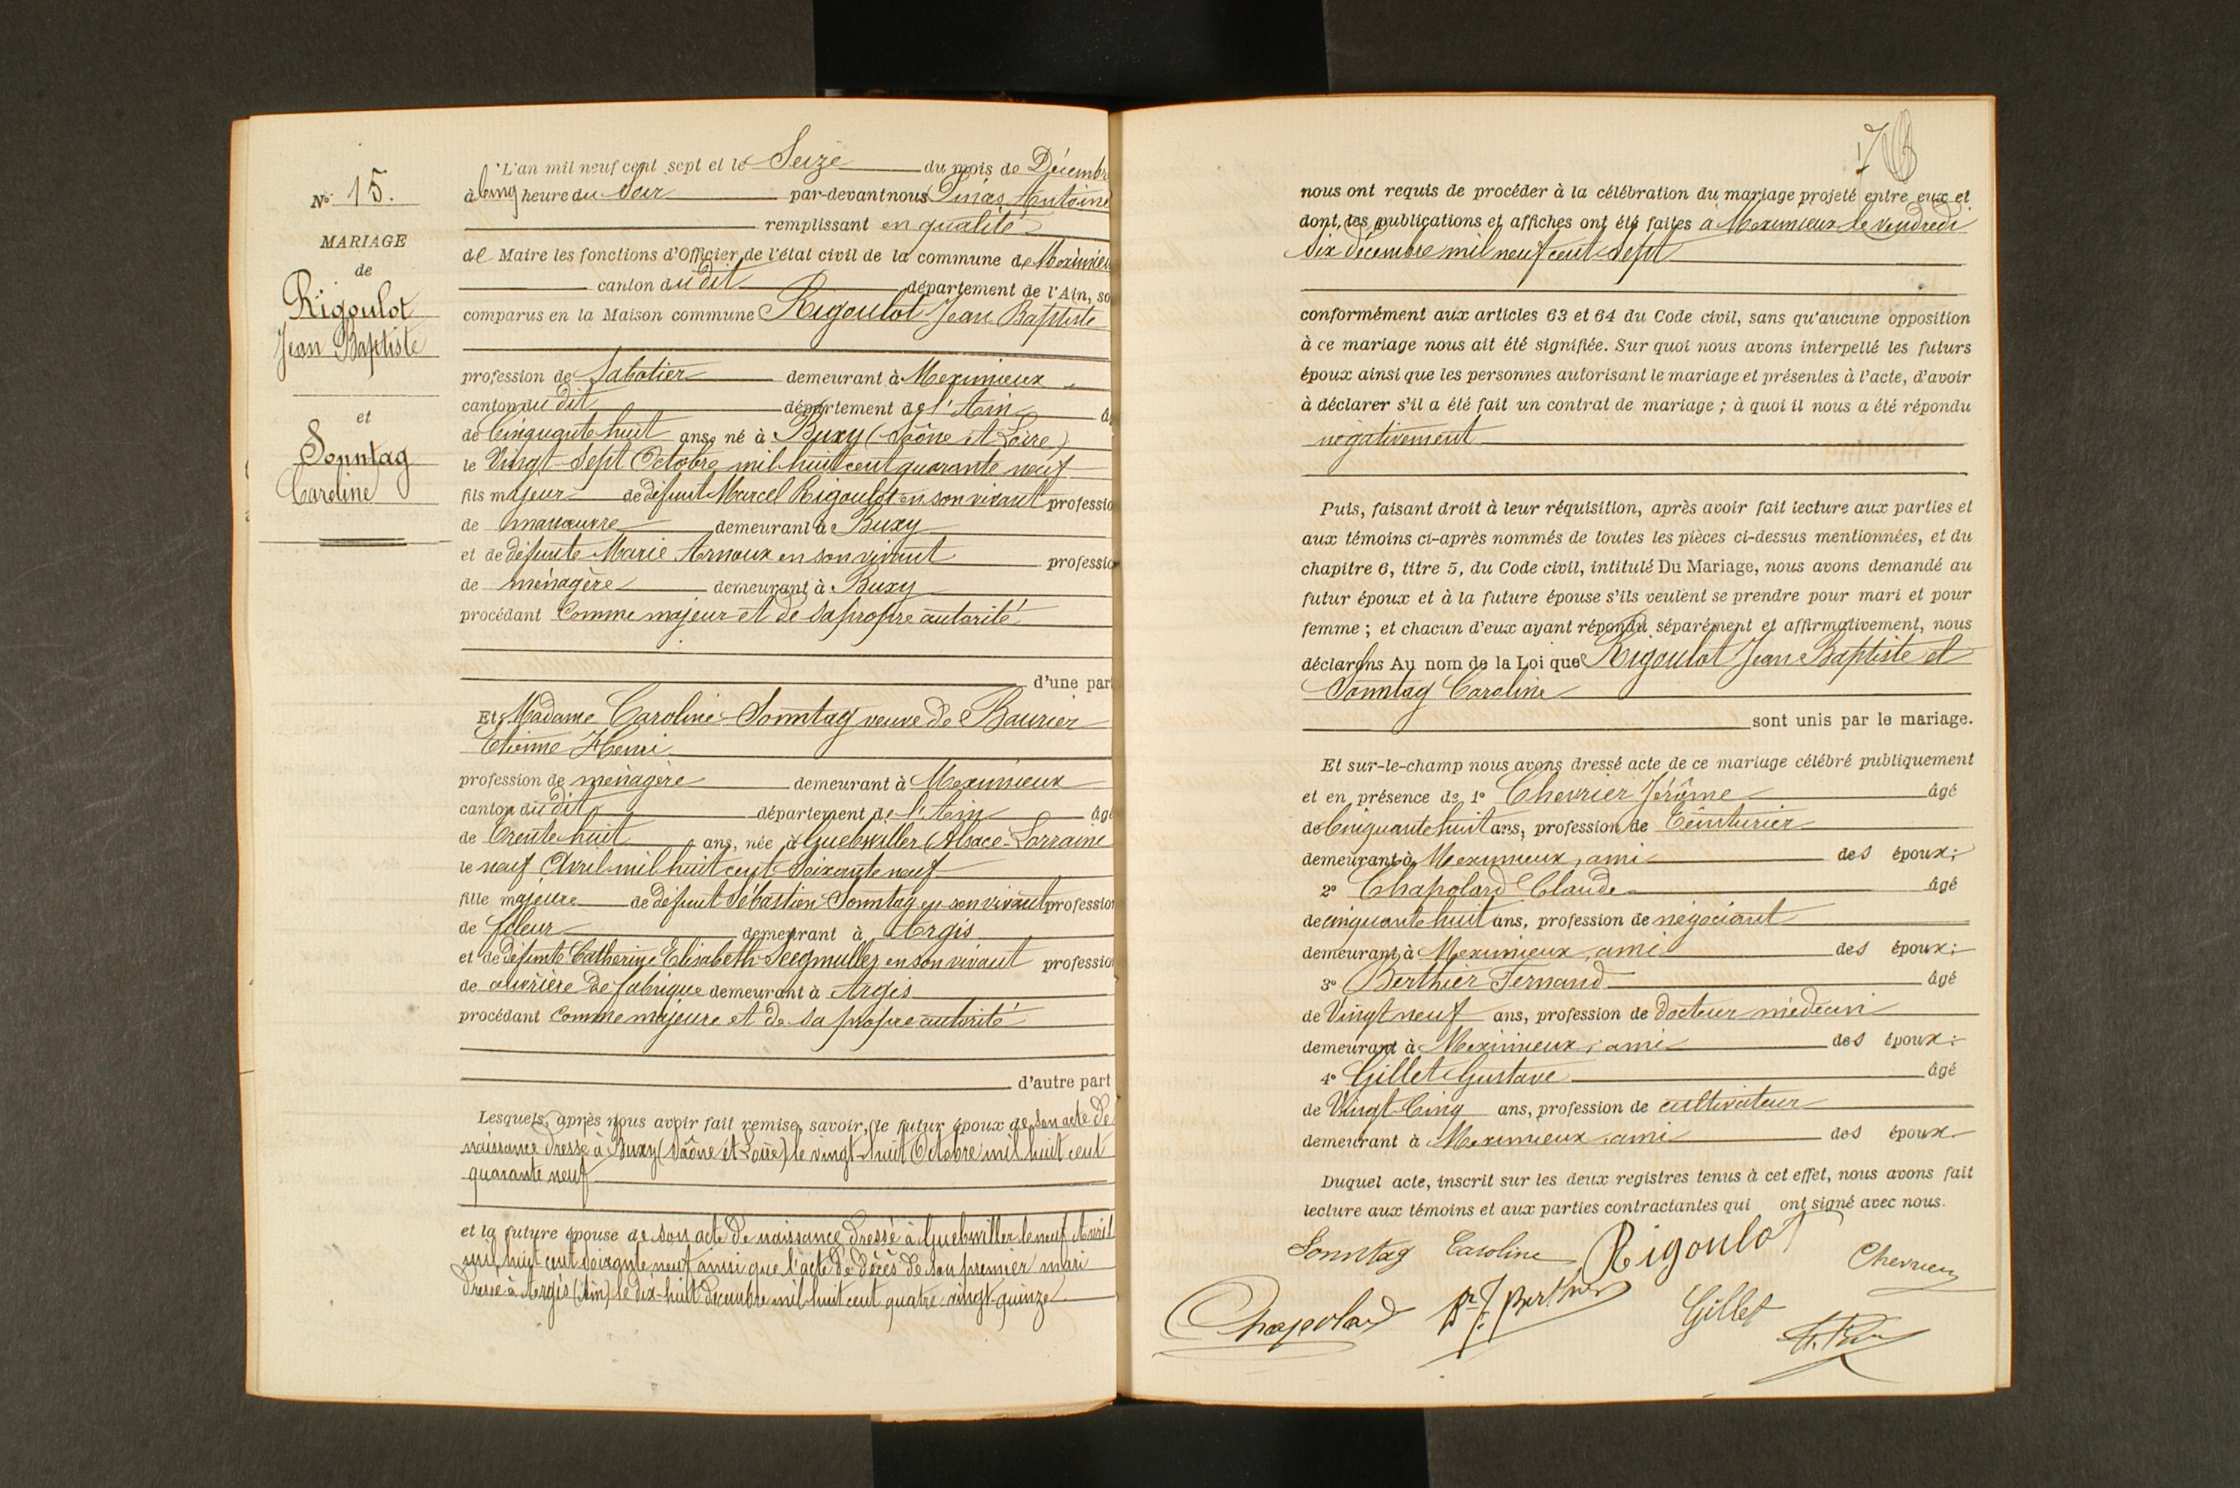 N° 15.
MARIAGE
de
Rigoulot
Jean Baptiste
et
Sonntag
Caroline
L'an mil neuf cent sept et le Seize du mois de Décembre
à Cinq heure du Soir par-devant nous Antoine
remplissant en qualité
de Maire les fonctions d'Officier de l'état civil de la commune de Meximieu
canton du dit département de l'Ain, so
comparus en la Maison commune Rigoulot Jean Baptiste
profession de Sabotier demeurant à Meximieux
canton du dit département de l'Ain â
de Cinquante huit ans, né à Buxy (Saône et Loire)
le Vingt-Sept Octobre mil huit cent quarante neuf
fils majeur de défunt Marcel Rigoulot en son vivant professio
de manœuvre demeurant à Buxy
et de défunte Marie Arnoux en son vivant professio
de ménagère demeurant à Buxy
procédant Comme majeur et de sa propre autorité
d'une part
Et Madame Caroline Sonntag veuve de Baurier
Etienne Henri
profession de ménagère demeurant à Meximieux
canton du dit département de l'Ain âgé
de Trente huit ans, née à Guebwiller (Alsace-Lorraine
le neuf Avril mil huit cent Soixante neuf
fille majeure de défunt Sébastien Sonntag en son vivant profession
de fileur demeurant à Argis
et de défunte Catherine Elisabeth Seegmuller en son vivant professio
de ouvrière de fabrique demeurant à Argis
procédant Comme majeure et de sa propre autorité
d'autre part
Lesquels, après nous avoir fait remise, savoir, le futur époux de son acte de
naissance dressé à Buxy (Saône et Loire) le vingt-huit Octobre mil huit cent
quarante neuf
et la future épouse de son acte de naissance dressé à Guebwiller le neuf Avril
mil huit cent soixante neuf ainsi que l'acte de décès de son premier mari
dressé à Argis (Ain) le dix-huit décembre mil huit cent quatre-vingt-quinze
nous ont requis de procéder à la célébration du mariage projeté entre eux et
dont, les publications et affiches ont été faites à Meximieux le vendredi
six décembre mil neuf cent sept
conformément aux articles 63 et 64 du Code civil, sans qu'aucune opposition
à ce mariage nous ait été signifiée. Sur quoi nous avons interpellé les futurs
époux ainsi que les personnes autorisant le mariage et présentes à l'acte, d'avoir
à déclarer s'il a été fait un contrat de mariage ; à quoi il nous a été répondu
négativement
Puis, faisant droit à leur réquisition, après avoir fait lecture aux parties et
aux témoins ci-après nommés de toutes les pièces ci-dessus mentionnées, et du
chapitre 6, titre 5, du Code civil, intitulé Du Mariage, nous avons demandé au
futur époux et à la future épouse s'ils veulent se prendre pour mari et pour
femme ; et chacun d'eux ayant répondu séparément et affirmativement, nous
déclarons Au nom de la Loi que Rigoulot Jean Baptiste et
Sonntag Caroline
sont unis par le mariage.
Et sur-le-champ nous avons dressé acte de ce mariage célébré publiquement
et en présence de 1° Chevrier Jérôme âgé
de Cinquante huit ans, profession de Ceinturier
demeurant à Meximieux, ami des époux;
2° Chapolard Claude âgé
de cinquante huit ans, profession de négociant
demeurant à Meximieux, ami des époux;
3° Berthier Fernand âgé
de Vingt neuf ans, profession de docteur médecin
demeurant à Meximieux, ami des époux;
4° Gillet Gustave âgé
de Vingt-Cinq ans, profession de cultivateur
demeurant à Meximieux ami des époux
Duquel acte, inscrit sur les deux registres tenus à cet effet, nous avons fait
lecture aux témoins et aux parties contractantes qui ont signé avec nous.
Sonntag Caroline Rigoulot Chevrier
Chapolard Dr F. Berthier Gillet